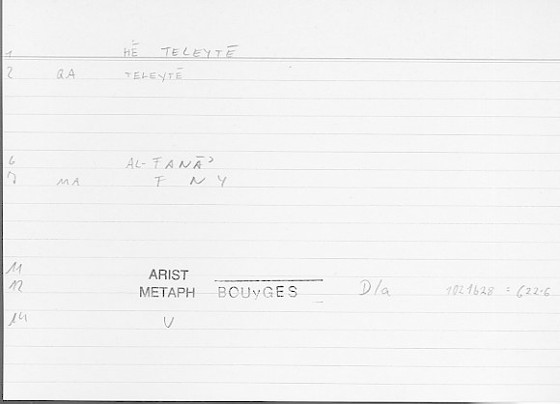 1 HĒ TELEYTĒ
2 QA TELEYTĒ
6 AL-FANĀʾ
7 MA F N Y
11 ARIST
12 METAPH BOUyGES D/a 1021b28 = 622.6
14 V